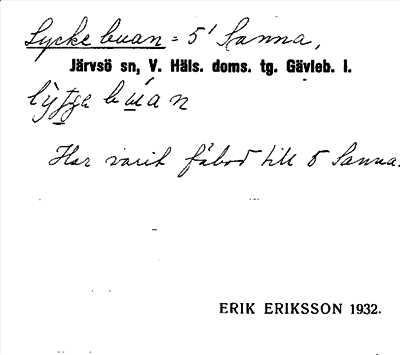 Lyckebuan = 5' Sanna,
Järvsö sn, V. Häls. doms. tg. Gävleb. l.
Har varit fäbod till 5 Sanna.
ERIK ERIKSSON 1932.